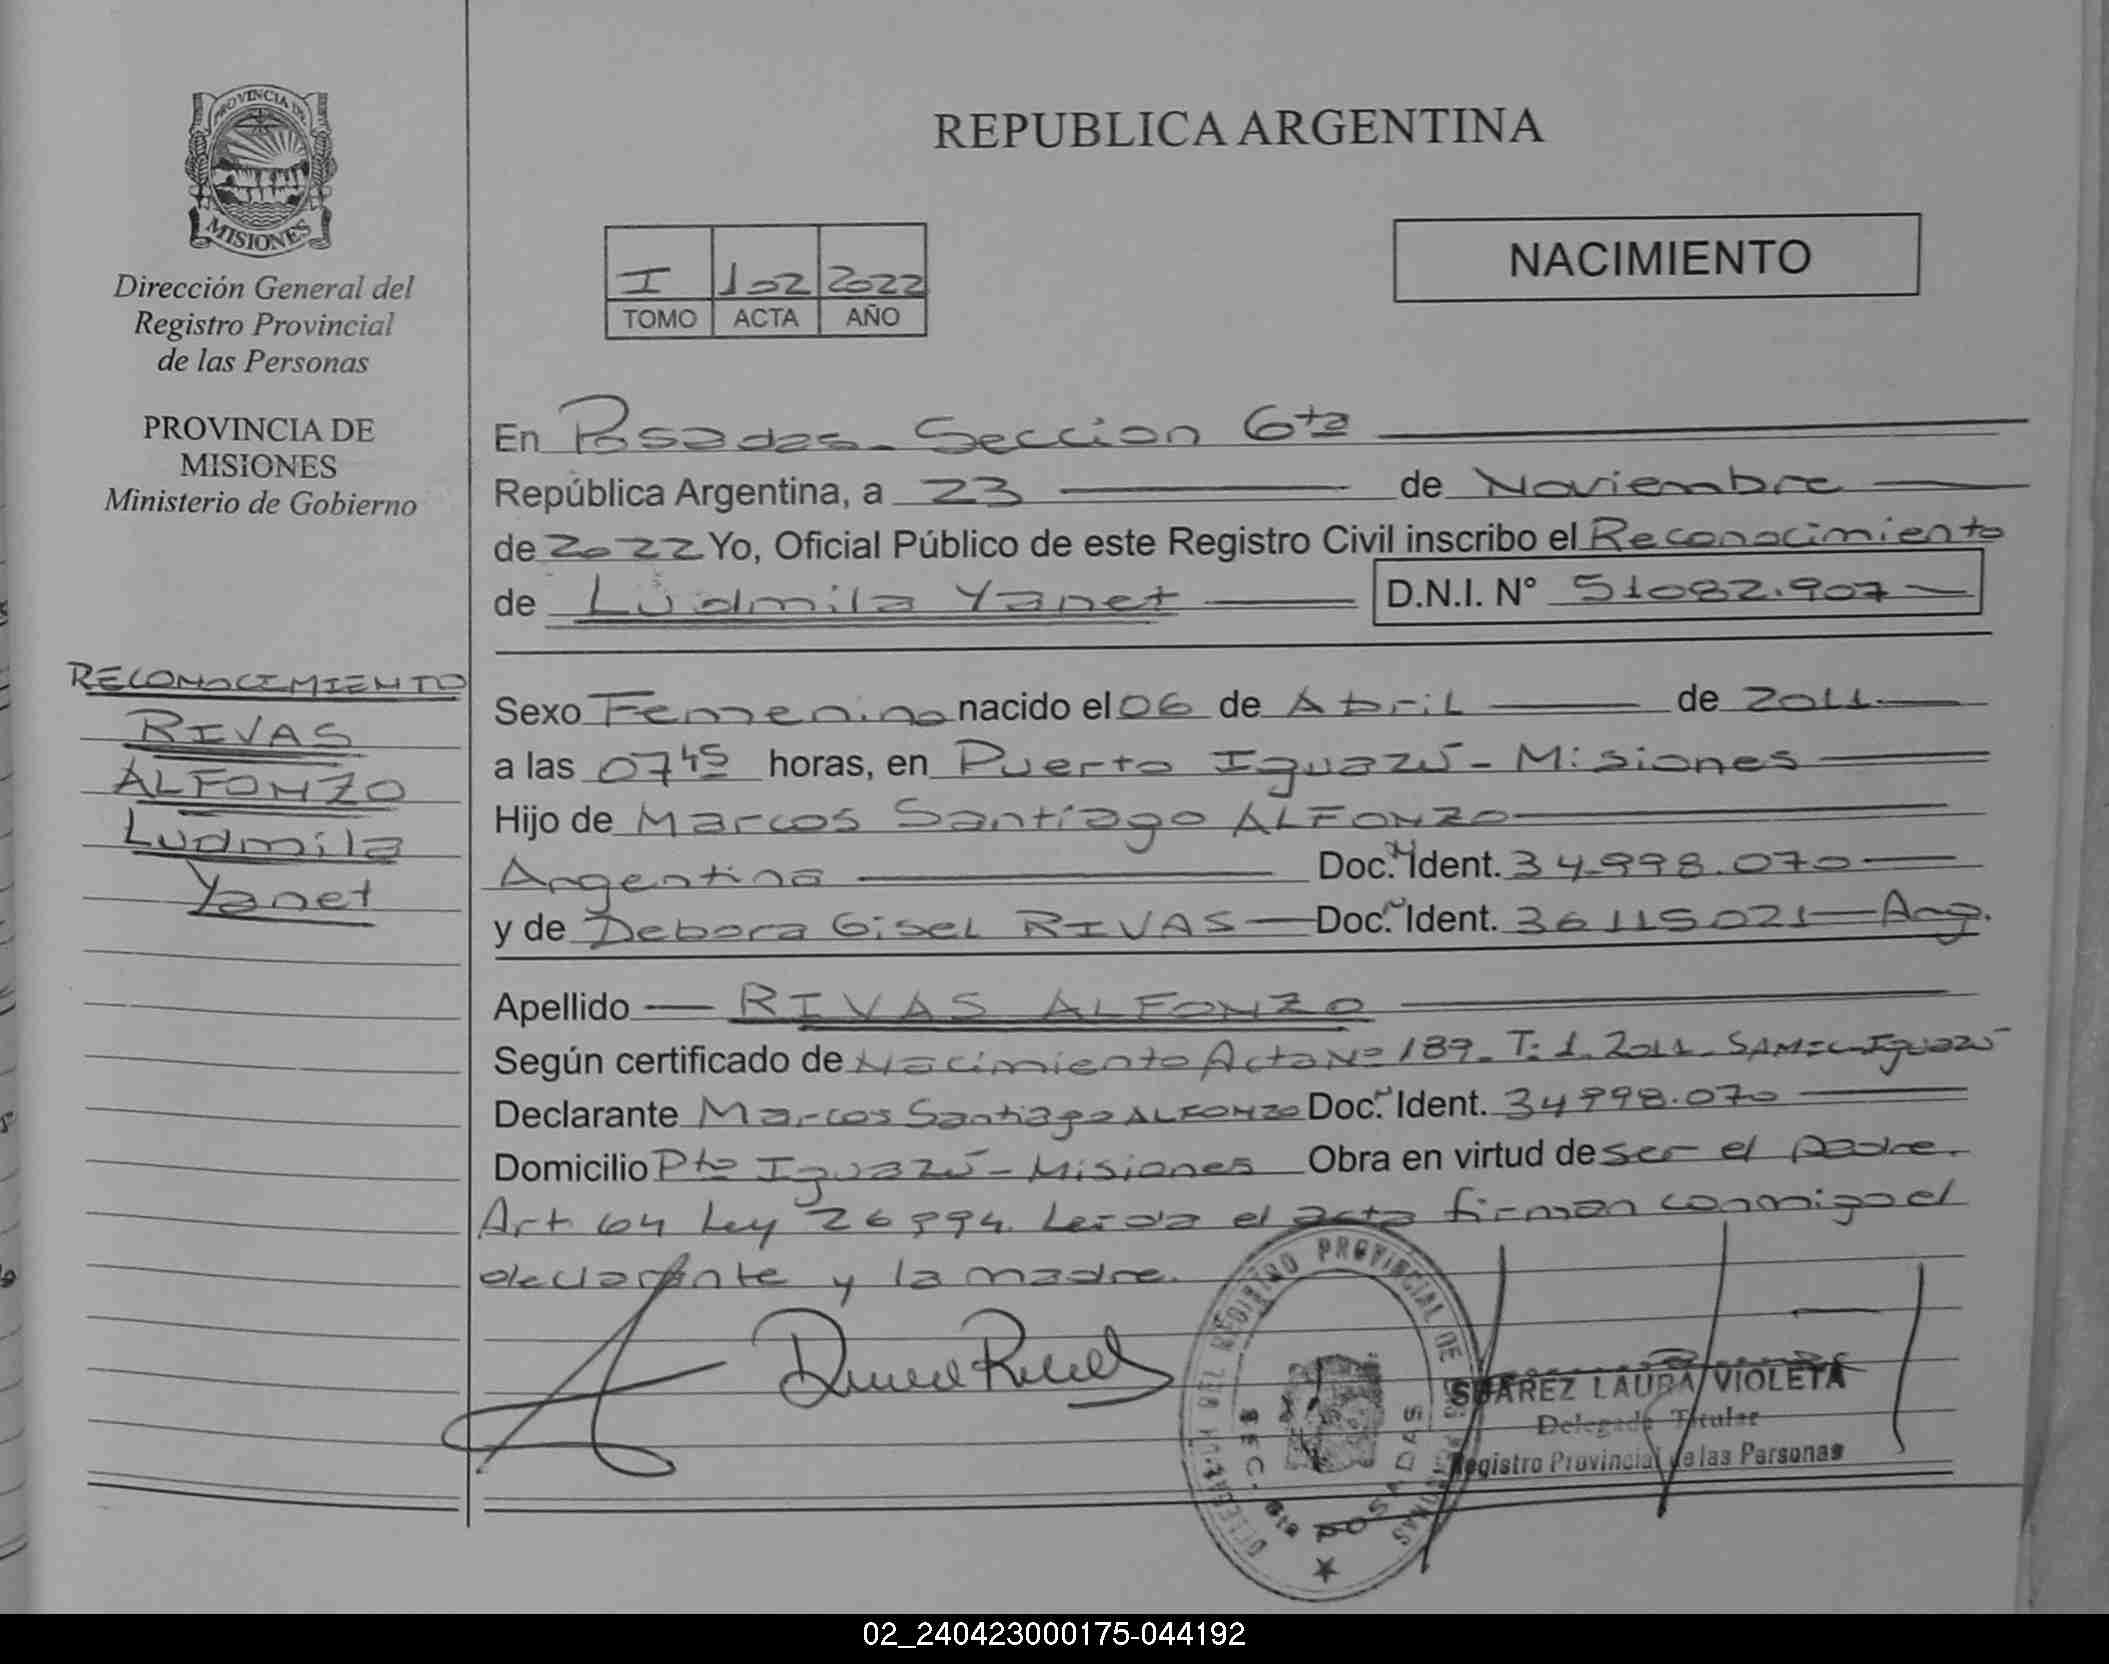 PROVINCIA DE
MISIONES
Dirección General del
Registro Provincial
de las Personas
PROVINCIA DE
MISIONES
Ministerio de Gobierno
RECONOCIMIENTO
RIVAS
ALFONZO
Ludmila
Yanet
REPUBLICA ARGENTINA
I 102 2022
TOMO ACTA AÑO
NACIMIENTO
En Posadas - Seccion 6ta
República Argentina, a 23 de Noviembre
de 2022 Yo, Oficial Público de este Registro Civil inscribo el Reconocimiento
de Ludmila Yanet D.N.I. N° 51082.907
Sexo Femenino nacido el 06 de Abril de 2011
a las 07 45 horas, en Puerto Iguazú - Misiones
Hijo de Marcos Santiago ALFONZO
Argentina Doc. Ident. 34.998.070
y de Debora Gisel RIVAS Doc. Ident. 36115021 Arg.
Apellido RIVAS ALFONZO
Según certificado de Nacimiento Acta No 189. T: 1. 2011. SAMIC-Iguazú
Declarante Marcos Santiago ALFONZO Doc. Ident. 34998.070
Domicilio Pto Iguazú - Misiones Obra en virtud de ser el padre.
Art 64 Ley 26994. Leida el acta firman conmigo el
declarante y la madre.
SUAREZ LAURA VIOLETA
Delegada Titular
Registro Provincial de las Personas
POSADAS
02_240423000175-044192